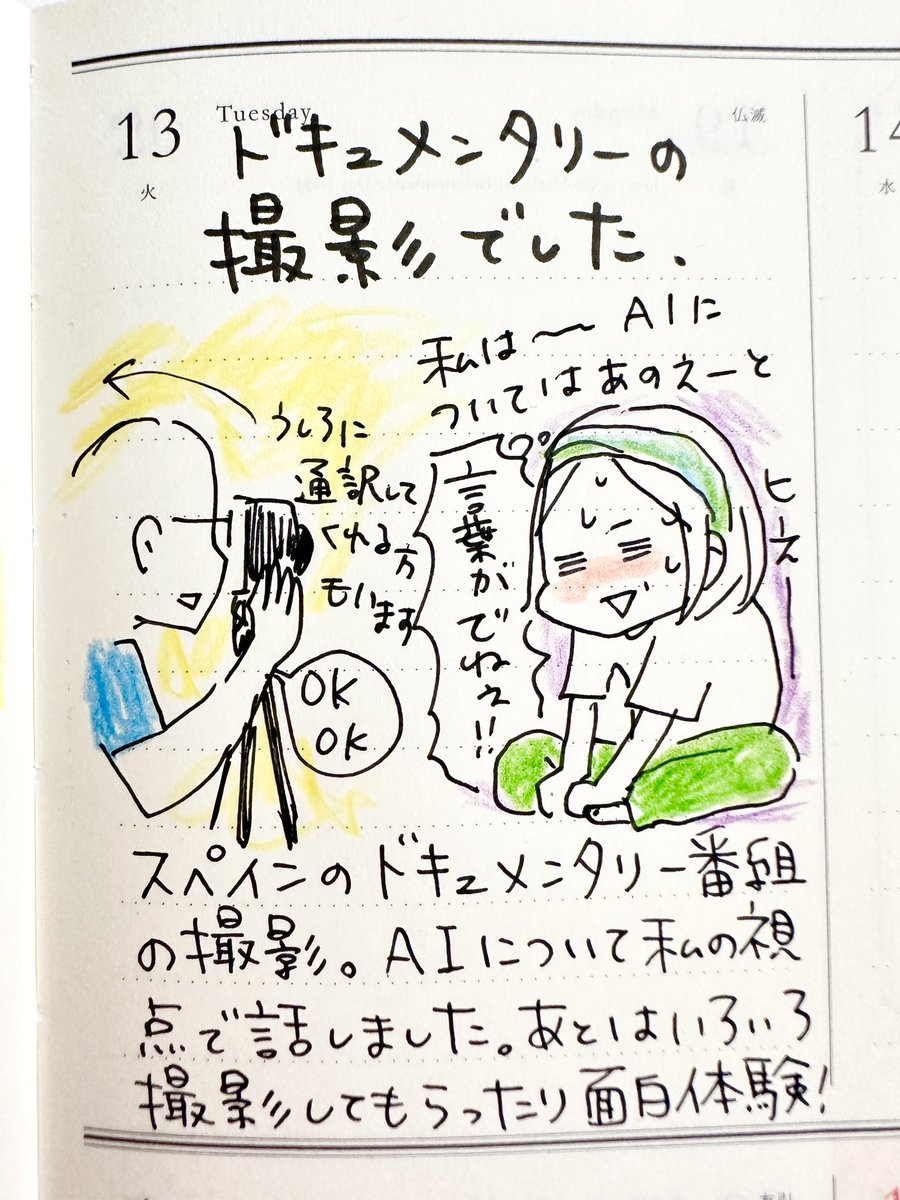 13
Tuesday
火
仏滅
14
水
ドキュメンタリーの
撮影でした、
私は〜 AIに
ついてはあのえーと
うしろに
通訳して
くれる方
もいます
言葉がでねぇ!!
ヒえー
OK
OK
スペインのドキュメンタリー番組
の撮影。AIについて私の視
点で話しました。あとはいろいろ
撮影してもらったり面白体験!